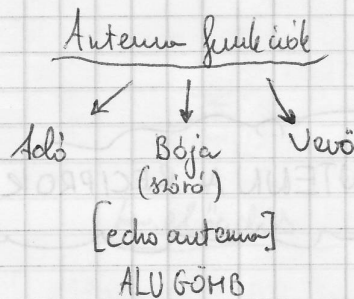 Antenna funkciók
Adó Bója Vevő
(szóró)
[echo antenna]
ALU GÖMB